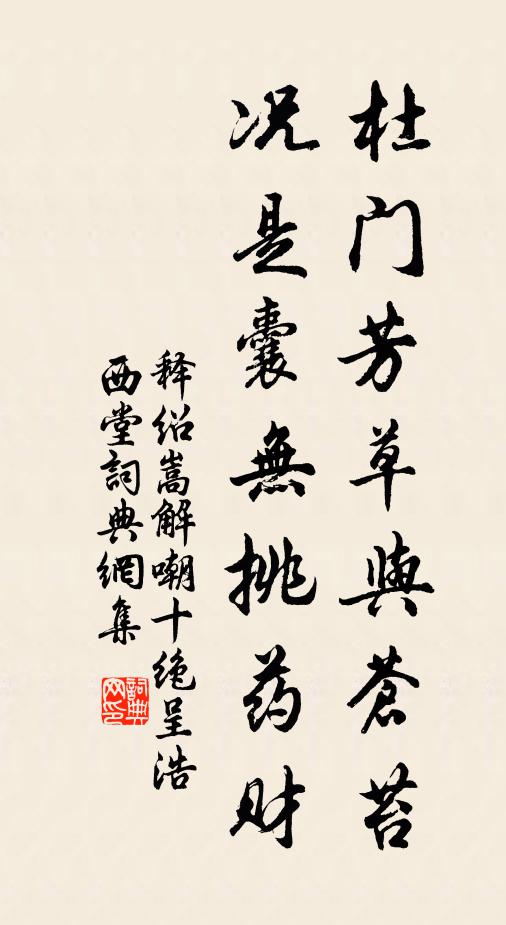 杜门芳草與苍苔
况是囊無挑药财
释绍嵩解嘲十绝呈浩
西堂詞典網集
詞典网印